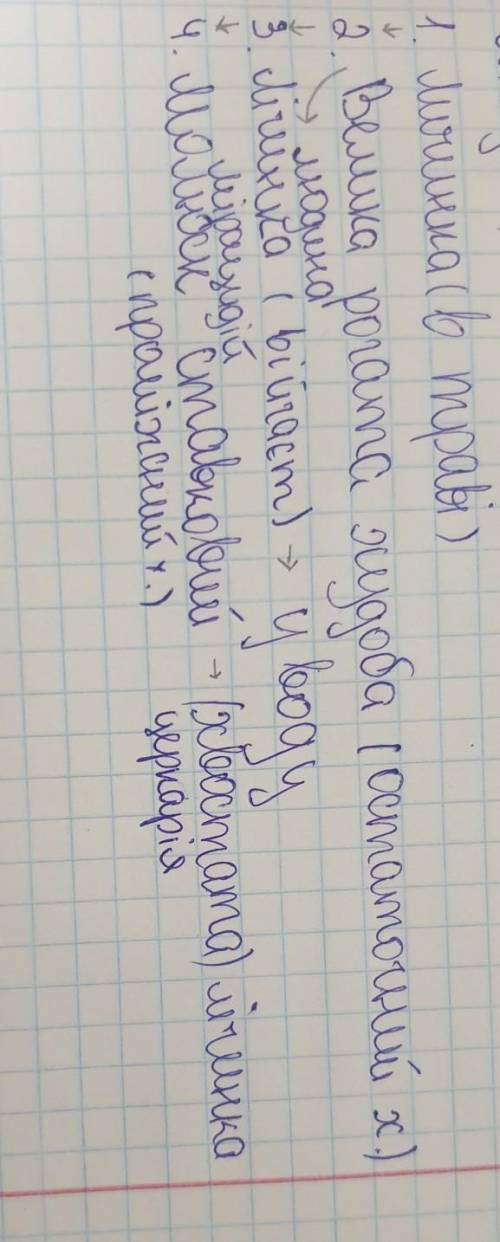 1. Личинка (в траві)
↓
2. Велика рогата худоба (остаточний х.)
↘ людина
↓
3. Лічинка (війчаст) → у воду
мірацидій
↓
4. Молюск ставковий → (хвостата) лічинка
(проміжний х.) церкарія